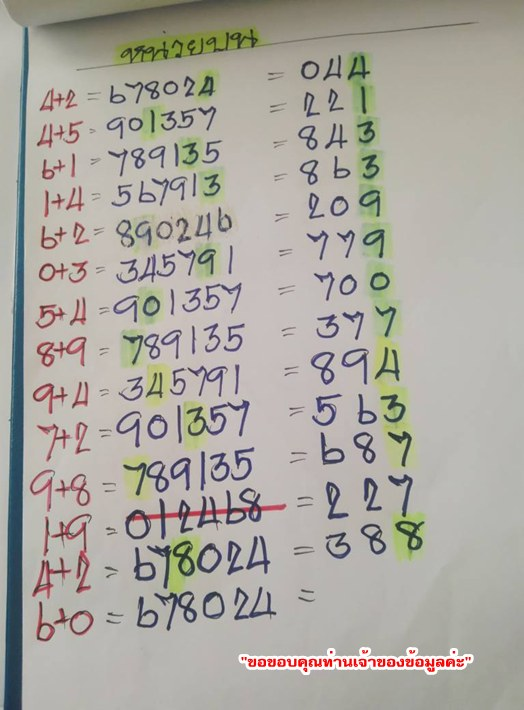 หน่วยบน
4+2 = 678024 = 044
4+5 = 901357 = 221
6+1 = 789135 = 843
1+4 = 567913 = 863
6+2 = 890246 = 209
0+3 = 345791 = 779
5+4 = 901357 = 700
8+9 = 789135 = 377
9+4 = 345791 = 894
7+2 = 901357 = 563
9+8 = 789135 = 687
1+9 = 012468 = 227
4+2 = 678024 = 388
6+0 = 678024 =
"ขอขอบคุณท่านเจ้าของข้อมูลค่ะ"